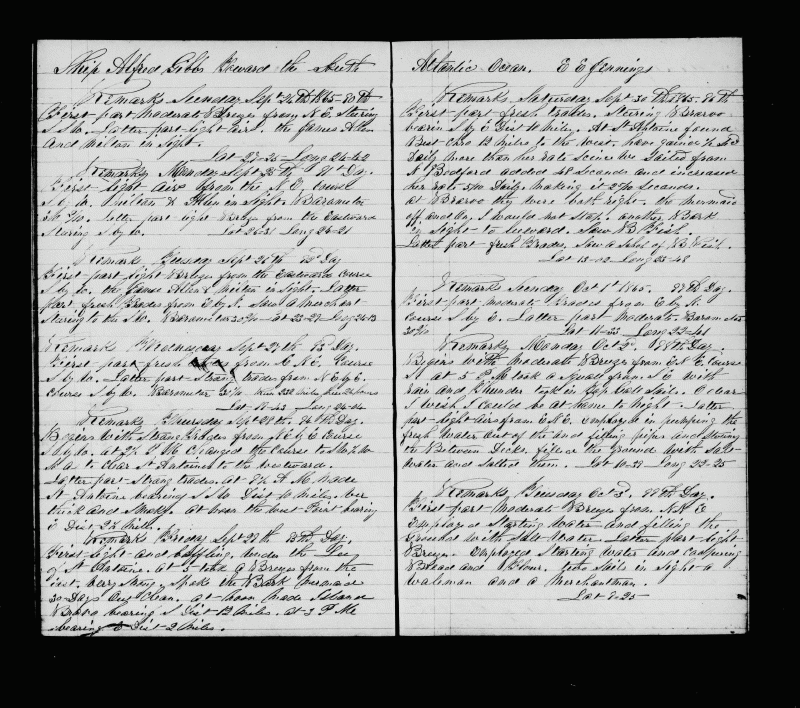 Ship Alfred Gibbs Toward the South
Remarks Sunday Sept 24th 1865
First part moderate Breezes from N.E. Stering
S S W. Latter part light airs. the James Allen
And Milton in Sight.
Lat 27-35 Long 24-42
Remarks Monday Sept 25th 81st Day.
First light airs from the N.E. Course
S by W. Milton & Allen in Sight. Barameter
30 2/10. latter part light Breezes from the Eastward
Stering S by W. Lat 26-31 Long 24-21
Remarks Tuesday Sept 26th Day
First part light Breezes from the Eastward Course
S by W. the James Allen & Milton in Sight. Latter
part fresh Trades from E by N. Saw a Merchant
Stering to the S.W. Barameter 30 2/10 Lat 23-27 Long 24-13
Remarks Wednesday Sept 27th 83 Day.
First part fresh from E.N.E. Course
S by W. Latter part Strong trades from N.E by E.
Course S by W. Barometer
Long 24-34
Remarks Thursday Sept 28th. 84th Day.
Begins with Strong trades from N E by E Course
S by W. at P M. Changed the Course to
to Clear St Antonia to the Westward.
Latter part Strong trades. at A.M. made
St Antone bearing S S W Dist Miles. ver
thick and Smoky. at noon the West Point bearing
E Dist Miles.
Remarks Friday Sept 29th Day.
First light and baffling. under the Lee
of St Antone. at 5 took a Breeze from the
East. very Strong. Spoke the Bark
30 Days Clean. at noon made Island
Bravo bearing S Dist 12 Miles. at 3 P Me
bearing E Dist 2 Miles.
Atlantic Ocean. E E Jennings
Remarks Saturday Sept 30th 1865. 86th
First part fresh trades. Stering Bravo
bearin S by E Dist Miles. At St Antone found
Best Chro 13 Miles to the West. have gained
Daily more than her rate Since we Sailed from
N. Bedford added 48 Seconds and increased
her rate 5/10 Daily. Making it 29/10 Seconds.
at Bravoo they were both right. the Mermaid
off and on, I would not Stop. another Bark
in Sight to Leeward. Saw B Fish.
Latter part fresh Trades, Saw a School of B Fish.
Lat 13-02 Long
Remarks Sunday Oct 1st 1865. 87th Day.
First part moderate Trades from E by N.
Course S by E. Latter part Moderate. Baram
30 2/10 Lat 11-33 Long 22-41
Remarks Monday Oct 2d. 88th Day.
Begins with Moderate Breezes from E N E Course
S. at 5 P.M took a Squall from S.E with
rain and thunder took in Top Gall Sails. O dear
I wish I could be at home to Night. Latter
part light airs from E.N.E. employed in pumping the
fresh Water out of the and filling pipes and Stowing
the Between Decks. filled the Ground with Salt
Water and Salted them. Lat 10-38 Long 22-25
Remarks Tuesday Oct 3d. 89th Day.
First part Moderate Breezes from N.N E
Employed Starting Water and filling the
Ground with Salt Water. Latter part light
Breezes. Employed Starting Water and
Bread and Flour. two Sails in Sight a
Waleman and a Merchantman.
Lat 9-25